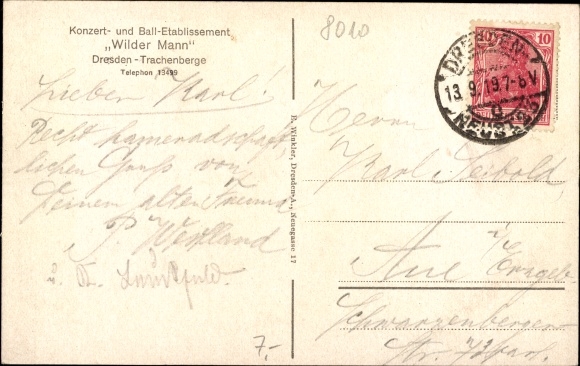 Konzert- und Ball-Etablissement
„Wilder Mann"
Dresden - Trachenberge
Telephon 13499
8010
10
DRESDEN
13.9.19.7-8V.
Lieben Karl!
Recht kameradschaft
lichen Gruß von
Deinem alten Freund
P. Westland
u. K.
R. Winkler, Dresden-A., Neuegasse 17
Herrn
Karl Seibold
Aue i/Erzgeb.
Schwarzenberger
Str.
7.-